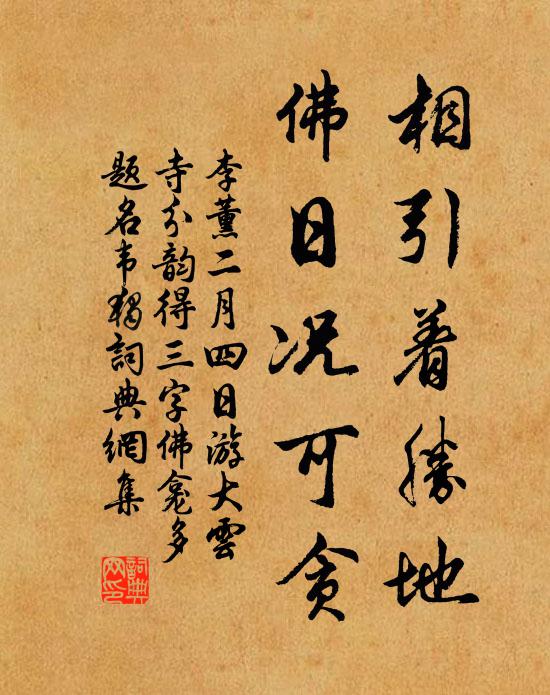 相引着勝地
佛日况可贪
李薰二月四日游大雲
寺分韵得三字佛龛多
题名韦詞典網集
詞典
网印